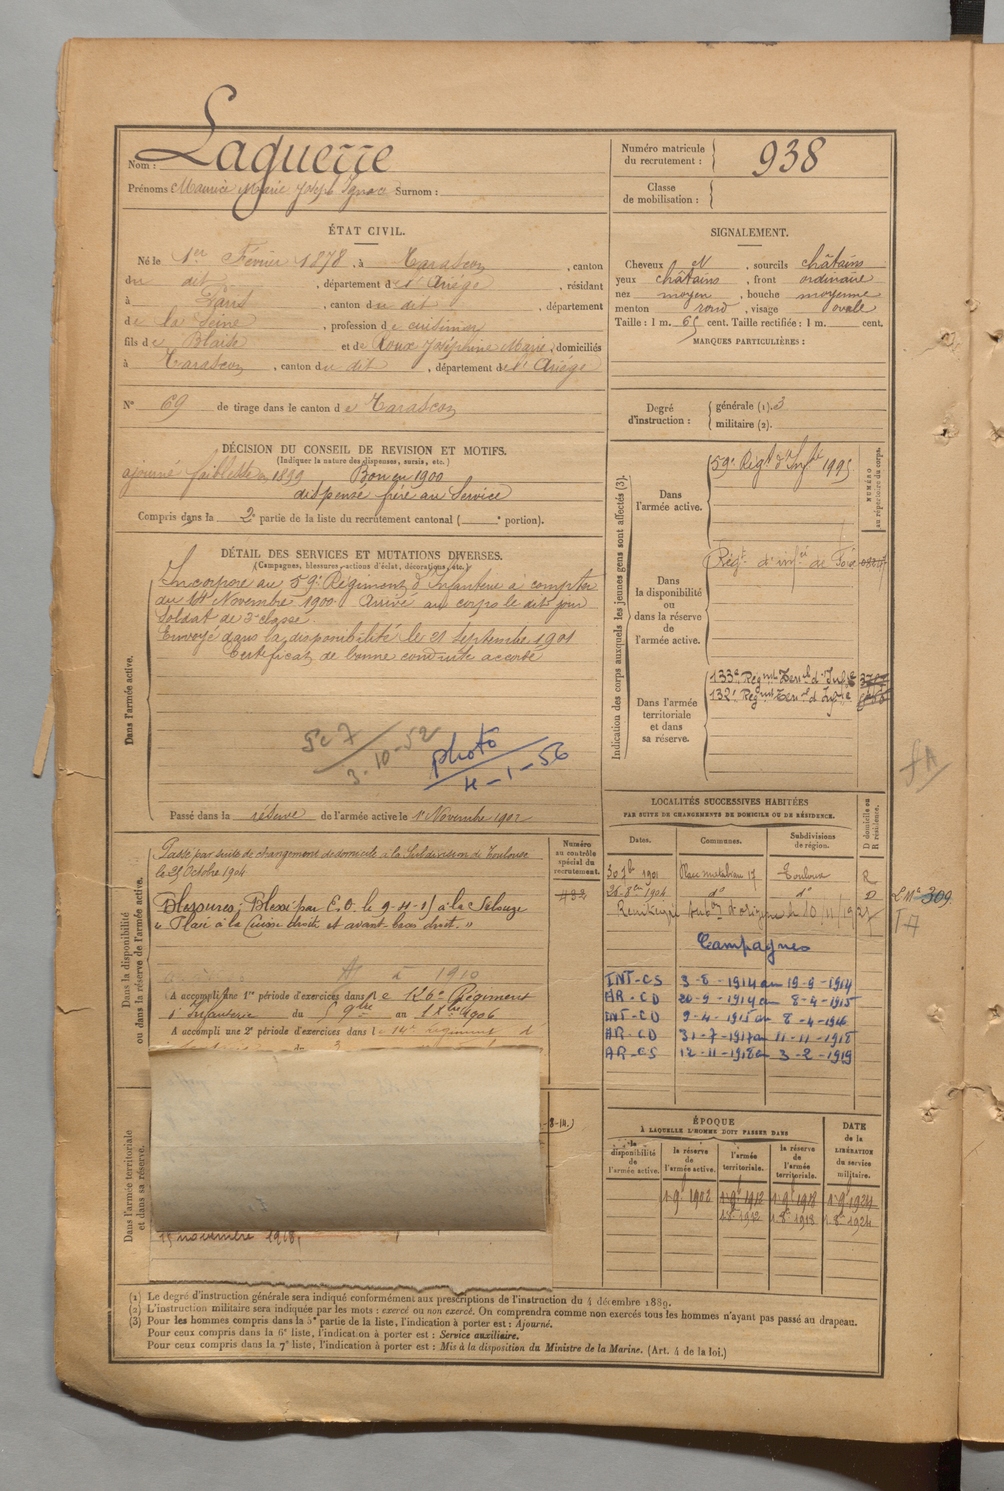 Nom : Laguerre
Prénoms : Maurice Marie Joseph Ignace Surnom :
Numéro matricule
du recrutement : 938
Classe
de mobilisation :
ÉTAT CIVIL.
Né le 1er Février 1878, à Tarascon, canton
du dit, département de l'Ariège, résidant
à Paris, canton du dit, département
de la Seine, profession de cuisinier
fils de Blaise et de Roux Joséphine Marie, domiciliés
à Tarascon, canton du dit, département de l'Ariège
N° 69 de tirage dans le canton de Tarascon
SIGNALEMENT.
Cheveux N, sourcils châtains
yeux châtains, front ordinaire
nez moyen, bouche moyenne
menton rond, visage ovale
Taille : 1 m. 65 cent. Taille rectifiée : 1 m. cent.
MARQUES PARTICULIÈRES :
Degré
d'instruction :
générale (1). 3
militaire (2).
DÉCISION DU CONSEIL DE REVISION ET MOTIFS.
(Indiquer la nature des dispenses, sursis, etc.)
ajourné faiblesse en 1899 Bon en 1900
dispensé frère au Service
Compris dans la 2e partie de la liste du recrutement cantonal ( e portion).
DÉTAIL DES SERVICES ET MUTATIONS DIVERSES.
(Campagnes, blessures, actions d'éclat, décorations, etc.)
Dans l'armée active.
Incorporé au 59e Régiment d'Infanterie à compter
du 14 Novembre 1900. Arrivé au corps le dit jour
Soldat de 2e classe.
Envoyé dans la disponibilité le 21 Septembre 1901
Certificat de bonne conduite accordé
3-10-52
photo
4-1-56
Passé dans la réserve de l'armée active le 1er Novembre 1902
Indication des corps auxquels les jeunes gens sont affectés (3).
NUMÉRO
au répertoire du corps.
Dans
l'armée active.
59e Régt d'Inft
Dans
la disponibilité
ou
dans la réserve
de
l'armée active.
Régt d'infie de Foix
Dans l'armée
territoriale
et dans
sa réserve.
133e Régmt Terral d'Infie
132e Régmt Terral d'Infie
Dans la disponibilité
ou dans la réserve de l'armée active.
Numéro
au contrôle
spécial du
recrutement.
Passé par suite de changement de domicile à la Subdivision de Toulouse
le 25 Octobre 1904
Blessures; Blessé par E.O. le 9-4-15 à la Selouze
"Plaie à la Cuisse droite et avant-bras droit."
1910
A accompli une 1re période d'exercices dans le 126e Régiment
d'Infanterie du 5 9bre au 1906
A accompli une 2e période d'exercices dans le 14e Régiment d'
LOCALITÉS SUCCESSIVES HABITÉES
PAR SUITE DE CHANGEMENTS DE DOMICILE OU DE RÉSIDENCE.
Dates.
Communes.
Subdivisions
de région.
D domicile ou
R résidence.
1901 Place matabiau 17 Toulouse R
1904 do do D
Campagnes
INT-CS 3-8-1914 au 19-9-1914
AR-CD 20-9-1914 au 8-4-1915
INT-CD 9-4-1915 au 8-4-1916
AR-CD 31-7-1917 au 11-11-1918
AR-CS 12-11-1918 au 3-2-1919
309
Dans l'armée territoriale
et dans sa réserve.
-8-14.)
15 novembre 1908,
ÉPOQUE
À LAQUELLE L'HOMME DOIT PASSER DANS
la
disponibilité
de
l'armée active.
la réserve
de
l'armée active.
l'armée
territoriale.
la réserve
de
l'armée
territoriale.
DATE
de la
LIBÉRATION
du service
militaire.
1er 9bre 1902 1er 9bre 1912 1er 9bre 1918 1er 9bre 1924
1er 8bre 1912 1er 8bre 1918 1er 8bre 1924
(1) Le degré d'instruction générale sera indiqué conformément aux prescriptions de l'instruction du 4 décembre 1889.
(2) L'instruction militaire sera indiquée par les mots : exercé ou non exercé. On comprendra comme non exercés tous les hommes n'ayant pas passé au drapeau.
(3) Pour les hommes compris dans la 5e partie de la liste, l'indication à porter est : Ajourné.
Pour ceux compris dans la 6e liste, l'indication à porter est : Service auxiliaire.
Pour ceux compris dans la 7e liste, l'indication à porter est : Mis à la disposition du Ministre de la Marine. (Art. 4 de la loi.)